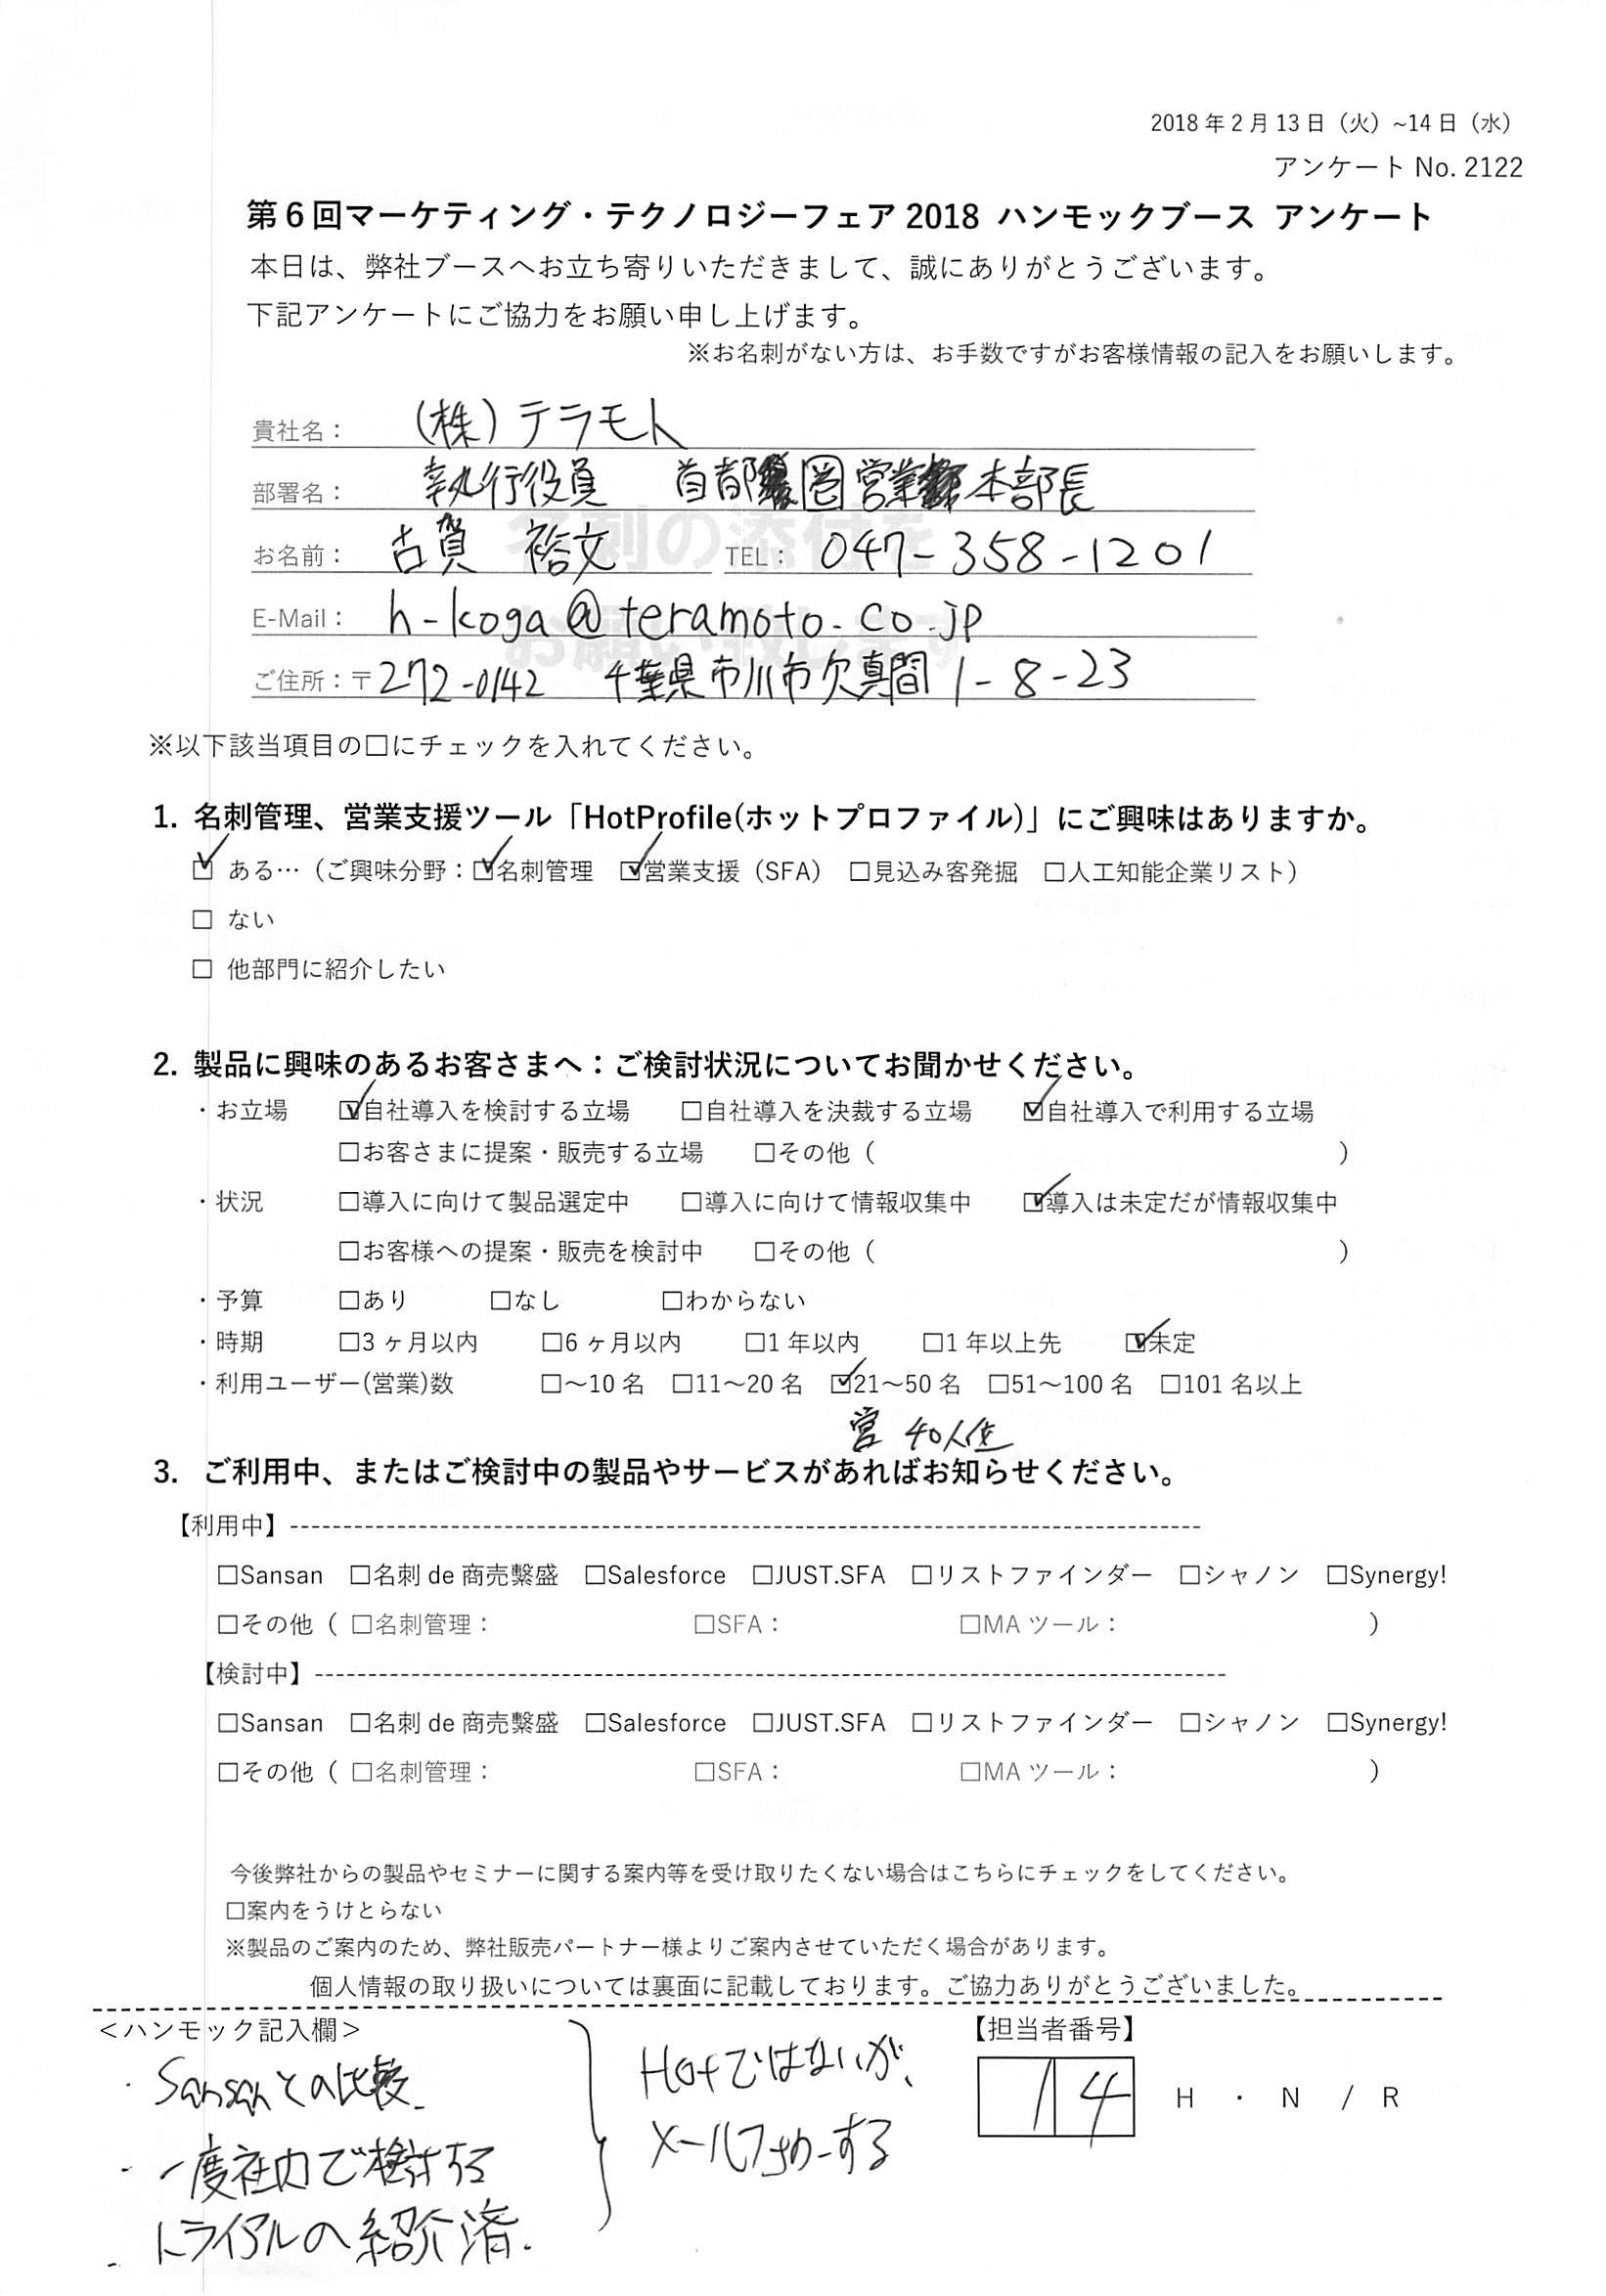 2018年2月13日（火）~14日（水）
アンケート No. 2122
第6回マーケティング・テクノロジーフェア2018 ハンモックブース アンケート
本日は、弊社ブースへお立ち寄りいただきまして、誠にありがとうございます。
下記アンケートにご協力をお願い申し上げます。
※お名刺がない方は、お手数ですがお客様情報の記入をお願いします。
名刺の添付を
お願い致します
貴社名： (株)テラモト
部署名： 執行役員 首都圏営業本部長
お名前： 古賀 裕文 TEL： 047-358-1201
E-Mail： h-koga@teramoto.co.jp
ご住所：〒272-0142 千葉県市川市欠真間1-8-23
※以下該当項目の□にチェックを入れてください。
1. 名刺管理、営業支援ツール「HotProfile(ホットプロファイル)」にご興味はありますか。
☑ ある…（ご興味分野：☑名刺管理 ☑営業支援（SFA） □見込み客発掘 □人工知能企業リスト）
□ ない
□ 他部門に紹介したい
2. 製品に興味のあるお客さまへ：ご検討状況についてお聞かせください。
・お立場 ☑自社導入を検討する立場 □自社導入を決裁する立場 ☑自社導入で利用する立場
□お客さまに提案・販売する立場 □その他（ ）
・状況 □導入に向けて製品選定中 □導入に向けて情報収集中 ☑導入は未定だが情報収集中
□お客様への提案・販売を検討中 □その他（ ）
・予算 □あり □なし □わからない
・時期 □3ヶ月以内 □6ヶ月以内 □1年以内 □1年以上先 ☑未定
・利用ユーザー(営業)数 □～10名 □11～20名 ☑21～50名 □51～100名 □101名以上
営 40人位
3. ご利用中、またはご検討中の製品やサービスがあればお知らせください。
【利用中】
□Sansan □名刺de商売繫盛 □Salesforce □JUST.SFA □リストファインダー □シャノン □Synergy!
□その他（ □名刺管理： □SFA： □MAツール： ）
【検討中】
□Sansan □名刺de商売繫盛 □Salesforce □JUST.SFA □リストファインダー □シャノン □Synergy!
□その他（ □名刺管理： □SFA： □MAツール： ）
今後弊社からの製品やセミナーに関する案内等を受け取りたくない場合はこちらにチェックをしてください。
□案内をうけとらない
※製品のご案内のため、弊社販売パートナー様よりご案内させていただく場合があります。
個人情報の取り扱いについては裏面に記載しております。ご協力ありがとうございました。
＜ハンモック記入欄＞
【担当者番号】
14 H ・ N / R
・Sansanとの比較.
・一度社内で検討する
・トライアルの紹介済.
Hotではないが、
メールフォローする